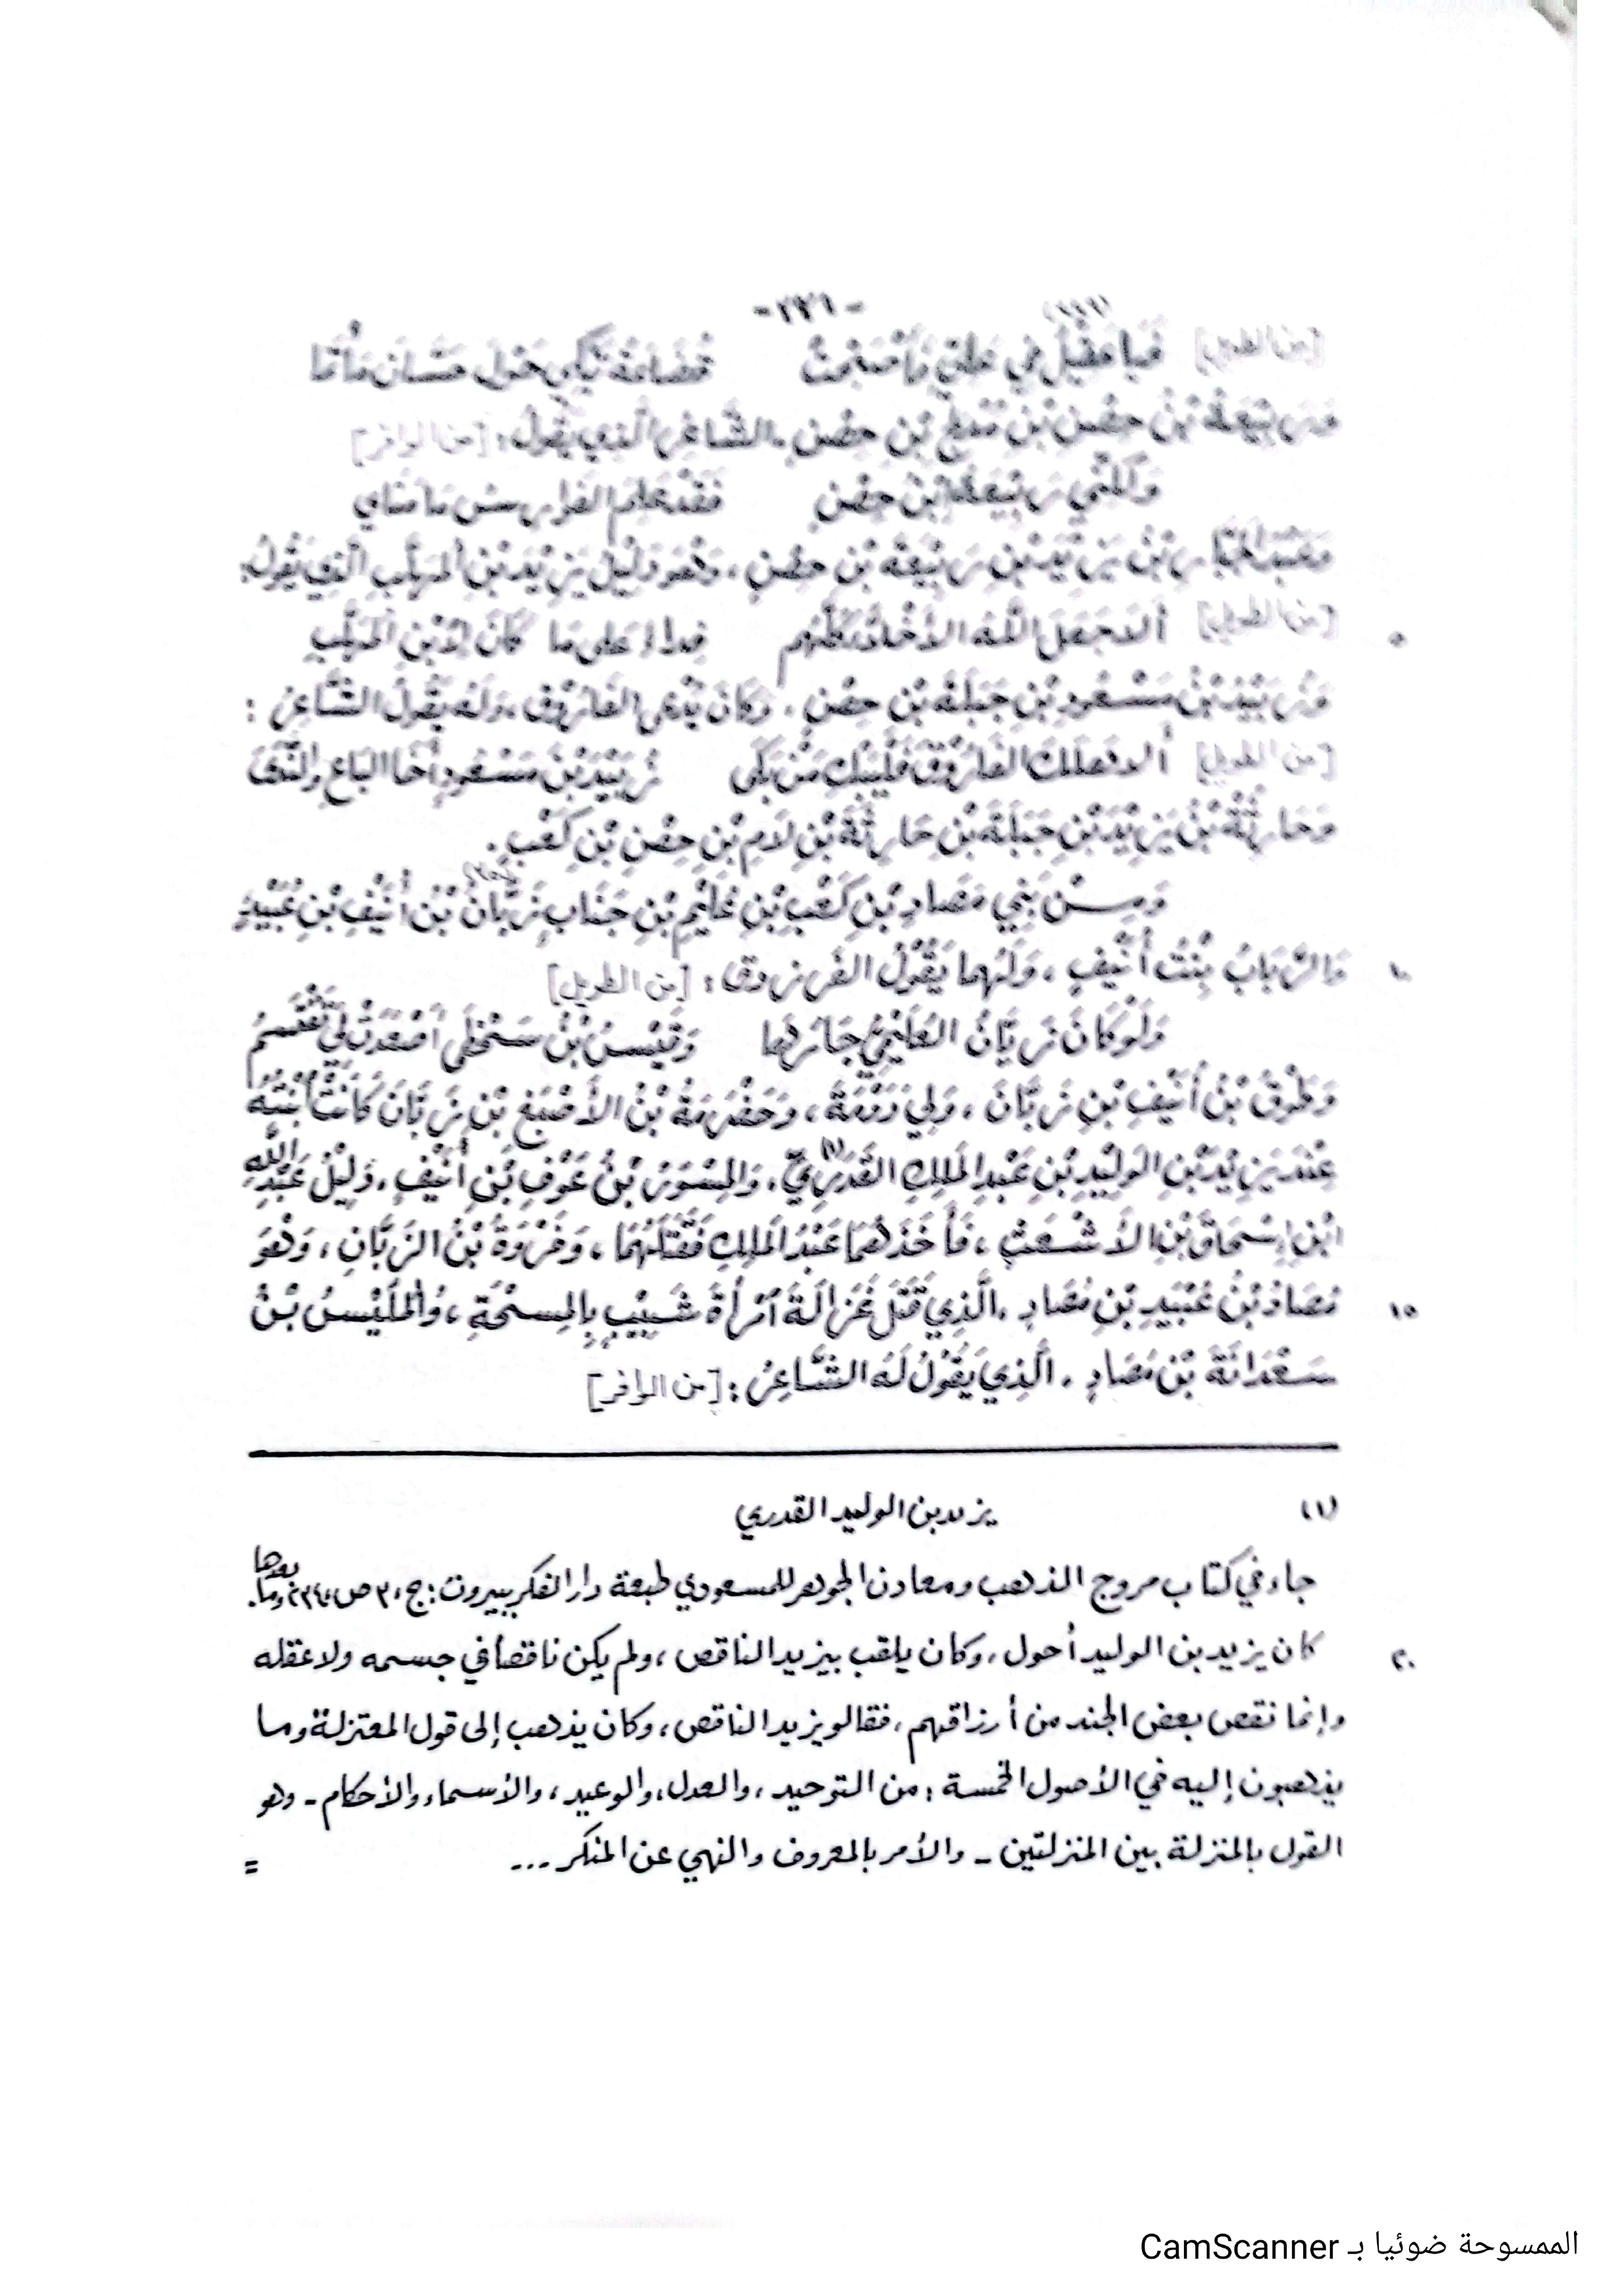 [من الطويل] قضاعة تبكي حول
وَرَبِيعَةُ بْنُ حِصْنِ بْنِ مُدْلِجِ بْنِ حِصْنٍ، الشَّاعِرُ الَّذِي يَقُولُ: [من الوافر]
رَبِيعَةُ ابْنُ حِصْنٍ فَقَدْ عَلِمَ الفوارس
وَعَبْدُ الجَبَّارِ بْنُ يَزِيْدَ بْنِ رَبِيْعَةَ بْنِ حِصْنٍ، وَهُوَ دَلِيْلُ يَزِيْدَ بْنِ المُهَلَّبِ الَّذِي يَقُولُ:
٥ [من الطويل] أَلاَ جَعَلَ اللَّهُ الأَخِلاَّءَ كُلَّهُمْ فِدَاءً عَلَى مَا كَانَ لاِبْنِ المُهَلَّبِ
وَزُبَيْدُ بْنُ مَسْعُودِ بْنِ جَبَلَةَ بْنِ حِصْنٍ، وَكَانَ يُدْعَى الفَارُوْقَ، وَلَهُ يَقُولُ الشَّاعِرُ:
[من الطويل] أَلاَ هَلَكَ الفَارُوْقُ فَلْيَبْكِ مَنْ بَكَى زُبَيْدَ بْنَ مَسْعُودٍ أَخَا البَاعِ وَالنَّدَى
وَحَارِثَةُ بْنُ يَزِيْدَ بْنِ جَبَلَةَ بْنِ حَارِثَةَ بْنِ لَامِ بْنِ حِصْنِ بْنِ كَعْبٍ.
وَمِنْ بَنِي مَصَادِ بْنِ كَعْبِ بْنِ عُلَيْمِ بْنِ جَنَابٍ زَبَّانُ بْنُ أُنَيْفِ بْنِ عُبَيْدٍ
١٠ وَالرَّبَابُ بِنْتُ أُنَيْفٍ، وَلَهُمَا يَقُوْلُ الفَرَزدوق: [من الطويل]
وَلَوْ كَانَ زَبَّانُ العُلَيْمِيُّ جَارَهَا وَقَيْسُ بْنُ
وَطُوْقُ بْنُ أُنَيْفِ بْنِ زَبَّانَ، وَلِيَ دَوْمَةَ، وَحَضْرَمَةُ بْنُ الأَصْبَغِ بْنِ زَبَّانَ كَانَتْ ابْنَتُهُ
عِنْدَ يَزِيْدَ بْنِ الوَلِيْدِ بْنِ عَبْدِ المَلِكِ القَدَرِيِّ (١)، وَالمِسْوَرُ بْنُ عَوْفِ بْنِ أُنَيْفٍ، دَلِيْلُ عَبْدِ اللَّهِ
ابْنِ إِسْحَاقَ بْنِ الأَشْعَثِ، فَأَخَذَهُمَا عَبْدُ المَلِكِ فَقَتَلَهُمَا، وَفَرْوَةُ بْنُ الزَّبَّانِ، وَهُوَ
١٥ مَصَادُ بْنُ عُبَيْدِ بْنِ مَصَادٍ، الَّذِي قَتَلَ غَزَالَةَ امْرَأَةَ شَبِيْبٍ بِالمِسْحَةِ، وَالحُلَيْسُ بْنُ
سَعْدَانَةَ بْنِ مَصَادٍ، الَّذِي يَقُوْلُ لَهُ الشَّاعِرُ: [من الوافر]
(١) يزيد بن الوليد القدري
جاء في كتاب مروج الذهب ومعادن الجوهر للمسعودي طبعة دار الفكر ببيروت: ج، ٣ ص، ٢٣٤ وما بعدها.
٢٠ كان يزيد بن الوليد أحول، وكان يلقب بيزيد الناقص، ولم يكن ناقصاً في جسمه ولا عقله
وإنما نقص بعض الجند من أرزاقهم، فقالو يزيد الناقص، وكان يذهب إلى قول المعتزلة وما
يذهبون إليه في الأصول الخمسة: من التوحيد، والعدل، والوعيد، والأسماء والأحكام - وهو
القول بالمنزلة بين المنزلتين - والأمر بالمعروف والنهي عن المنكر ... =
الممسوحة ضوئيا بـ CamScanner